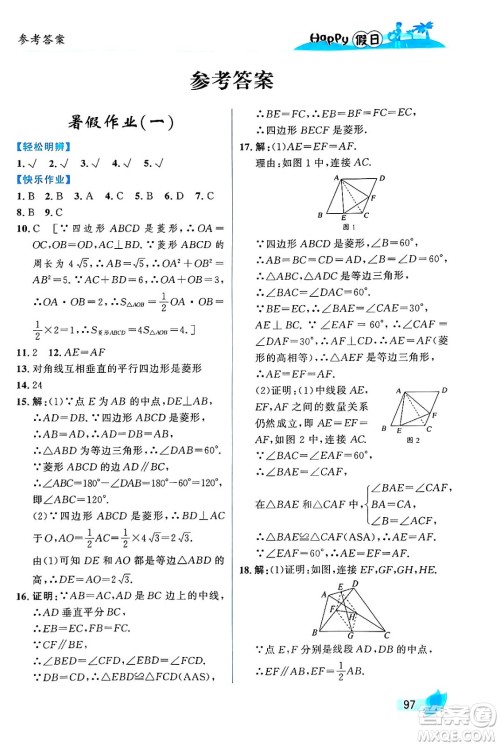 参考答案
Happy 假日
参考答案
暑假作业(一)
【轻松明辨】
1. √　2. √　3. √　4. √　5. √
【快乐作业】
1. B　2. B　3. A　4. C　5. B　6. B　7. C
8. B　9. B
10. C　[∵四边形 ABCD 是菱形,∴OA=
OC,OB=OD,AC⊥BD. ∵菱形 ABCD 的
周长为 4√5,∴AB=√5,∴OA²+OB²=
AB²=5. ∵AC+BD=6,∴OA+OB=3,
∴OA·OB=2,∴S△AOB=1/2 OA·OB=
1/2×2=1. ∴S菱形ABCD=4S△AOB=4. ]
11. 2　12. AE=AF
13. 对角线互相垂直的平行四边形是菱形
14. 24
15. 解:(1)∵点 E 为 AB 的中点,DE⊥AB,
∴AD=DB. ∵四边形 ABCD 是菱形,
∴AB=AD,∴AD=DB=AB,
∴△ABD为等边三角形,∴∠DAB=60°.
∵菱形 ABCD 的边 AD∥BC,
∴∠ABC=180°-∠DAB=180°-60°=120°,
即∠ABC=120°.
(2)∵四边形 ABCD 是菱形,∴AC⊥BD
于O,AO=1/2AC=1/2×4√3=2√3.
由(1)可知 DE 和 AO 都是等边△ABD 的
高,∴DE=AO=2√3.
16. 证明:∵AD 是边 BC 上的中线,AB=AC,
∴AD 垂直平分 BC,
∴EB=EC,FB=FC,BD=CD.
∵CF∥BE,
∴∠EBD=∠FCD,∠BED=∠CFD.
∴△EBD≌△FCD(AAS),
∴BE=FC,∴EB=BF=FC=EC,
∴四边形 BECF 是菱形.
17. 解:(1)AE=EF=AF.
理由:如图 1 中,连接 AC,
A
D
F
B
E
C
图 1
∵四边形 ABCD 是菱形,∠B=60°,
∴AB=BC=CD=AD,∠B=∠D=60°,
∴△ABC,△ADC 是等边三角形,
∴∠BAC=∠DAC=60°.
∵BE=EC,∴∠BAE=∠CAE=30°,AE⊥BC.
∵∠EAF=60°,∴∠CAF=∠DAF=30°,
∴AF⊥CD,∴AE=AF,
∴△AEF 是等边三角形,
∴AE=EF=AF.
(2)证明:(1)中线段 AE,EF,
AF 之间的数量关系
仍然成立,
如图 2,连接 AC,
∵∠BAC=∠EAF=60°,
∴∠BAE=∠CAF,
A
D
F
B
E
C
图 2
在△BAE 和△CAF 中,
∠BAE=∠CAF,
BA=AC,
∠B=∠ACF,
∴△BAE≌△CAF(ASA),∴AE=AF.
∵∠EAF=60°,∴△AEF 是等边三角形,
∴AE=EF=AF.
18. 解:(1)证明:如图,连接 EF,GF,GH,HE.
A
E
D
B
G
C
∵点 E,F 分别是线段 AD,BD 的中点,
∴EF∥AB,EF=1/2AB.
97